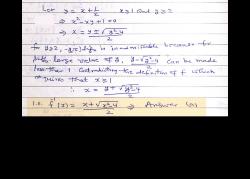 Let y = x + 1/x   x ≥ 1 and y ≥ 2
⇒ x² - xy + 1 = 0
⇒ x = (y ± √(y²-4))/2
for y ≥ 2, is inadmissible because for
large value of y, (y - √(y²-4))/2 can be made
less than 1 Contradicting the definition of f which
that x ≥ 1
∴ x = (y + √(y²-4))/2
i.e. f⁻¹(x) = (x + √(x²-4))/2 ⇒ Answer (a)